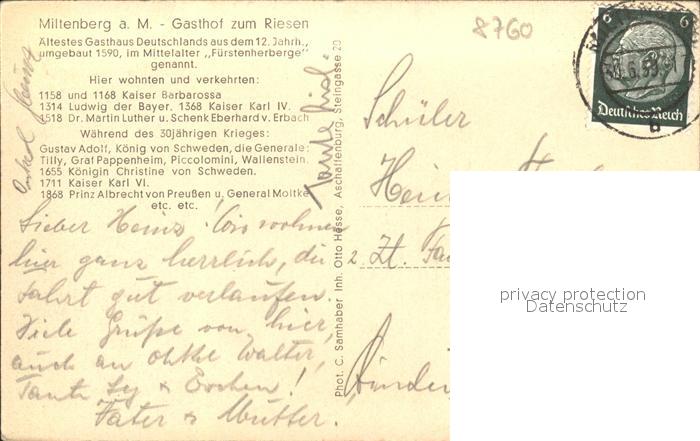 Miltenberg a. M. - Gasthof zum Riesen
Ältestes Gasthaus Deutschlands aus dem 12. Jahrh.,
umgebaut 1590, im Mittelalter „Fürstenherberge"
genannt.
Hier wohnten und verkehrten:
1158 und 1168 Kaiser Barbarossa
1314 Ludwig der Bayer. 1368 Kaiser Karl IV.
1518 Dr. Martin Luther u. Schenk Eberhard v. Erbach
Während des 30jährigen Krieges:
Gustav Adolf, König von Schweden, die Generale:
Tilly, Graf Pappenheim, Piccolomini, Wallenstein.
1655 Königin Christine von Schweden.
1711 Kaiser Karl VI.
1868 Prinz Albrecht von Preußen u. General Moltke
etc. etc.
Lieber Heinz! Wir wohnen
hier ganz herrlich, die
Fahrt gut verlaufen.
Viele Grüße von hier,
auch an Walter,
Tante &
Vater & Mutter.
Onkel
Tante
Phot. C. Samhaber Inh. Otto Hesse, Aschaffenburg, Steingasse 20
8760
6 6
Deutsches Reich
b
Schüler
z. Zt.
privacy protection
Datenschutz